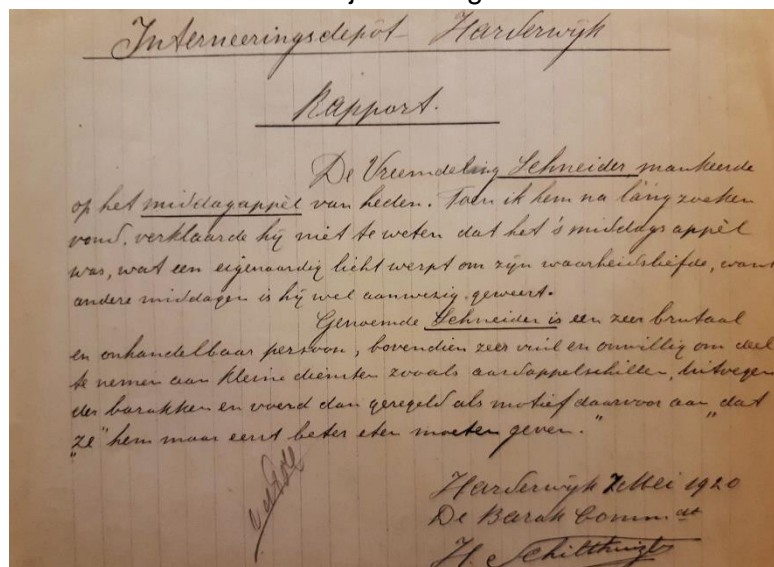 Interneeringsdepôt Harderwijk
Rapport.
De Vreemdeling Schneider mankeerde
op het middagappèl van heden. Toen ik hem na lang zoeken
vond, verklaarde hij niet te weten dat het 's middags appèl
was, wat een eigenaardig licht werpt om zijn waarheidsliefde, want
andere middagen is hij wel aanwezig geweest.
Genoemde Schneider is een zeer brutaal
en onhandelbaar persoon, bovendien zeer vuil en onwillig om deel
te nemen aan kleine diensten zooals aardappelschillen, uitvegen
der barakken en voerd dan geregeld als motief daarvoor aan "dat
"ze" hem maar eerst beter eten moeten geven."
Harderwijk 7 Mei 1920
De Barak Commdt
H. Schilthuizen